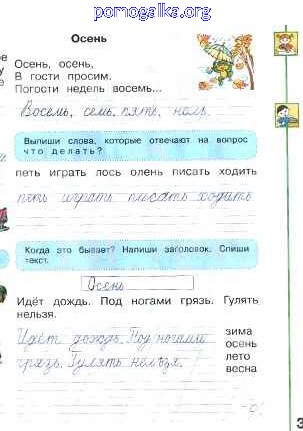 pomogalka.org
Осень
Осень, осень,
В гости просим.
Погости недель восемь...
Восемь, семь, пять, ноль.
Выпиши слова, которые отвечают на вопрос
что делать?
петь играть лось олень писать ходить
петь играть писать ходить
Когда это бывает? Напиши заголовок. Спиши
текст.
Осень
Идёт дождь. Под ногами грязь. Гулять
нельзя.
Идёт дождь. Под ногами
грязь. Гулять нельзя.
зима
осень
лето
весна
3